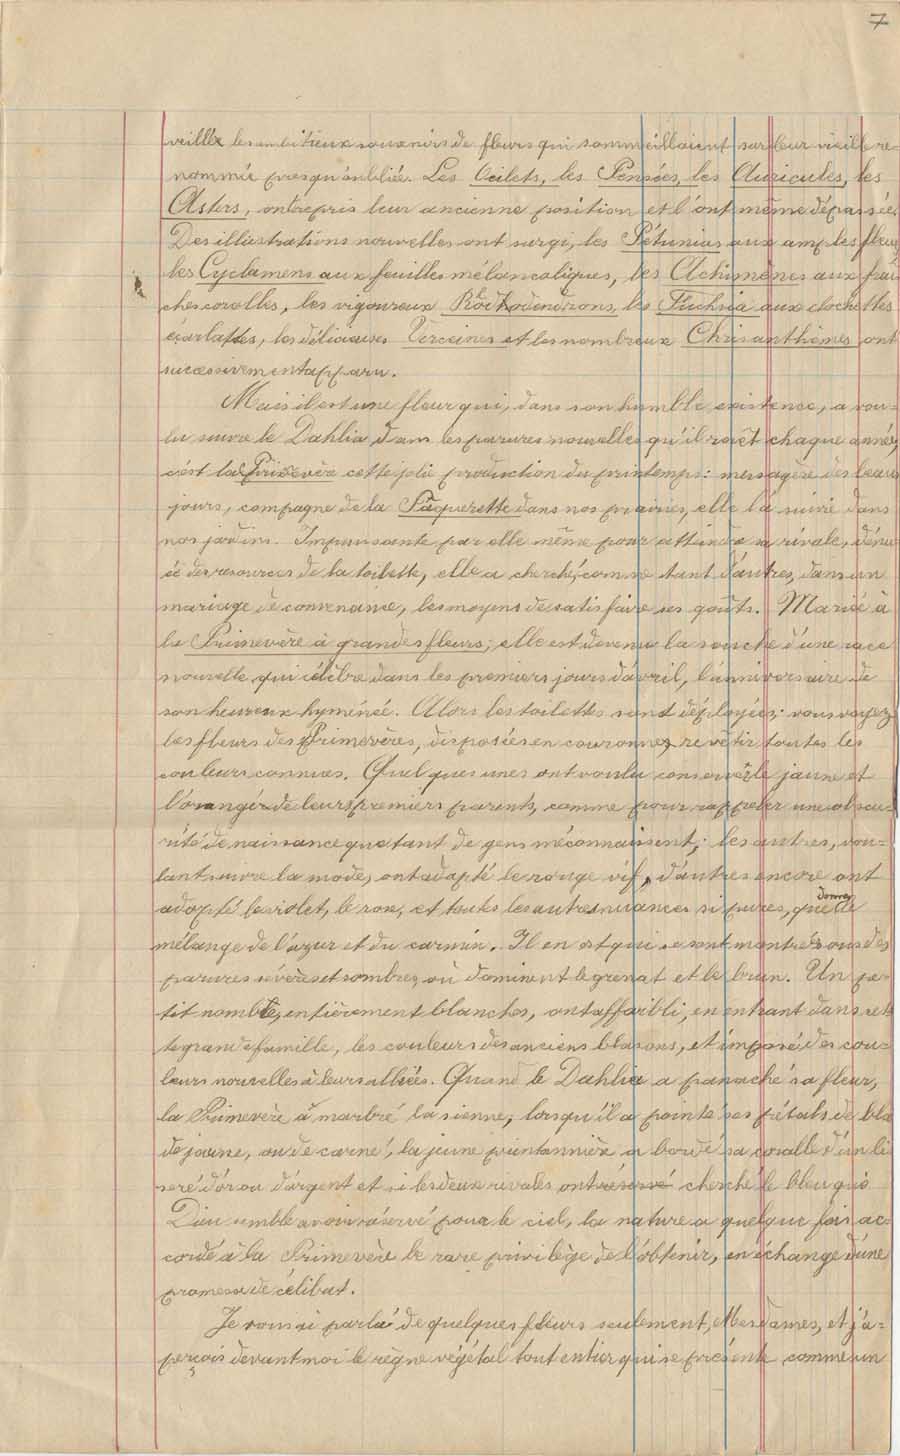 7
veiller les ambitieux souvenirs de fleurs qui sommeillaient sur leur vieille re-
nommée presqu'oubliée. Les Oeilets, les Pensées, les Auricules, les
Asters, ont repris leur ancienne position et l'ont même dépassée.
Des illustrations nouvelles ont surgi, les Pétunias aux amples fleurs
les Cyclamens aux feuilles mélancoliques, les Achimènes aux fraî-
ches corolles, les vigoureux Rhododendrons, les Fuchsia aux clochettes
écarlattes, les délicieuses Verveines et les nombreux Chrisanthèmes ont
successivement apparu.
Mais il est une fleur qui, dans son humble existence, a vou-
lu suivre le Dahlia dans les parures nouvelles qu'il revêt chaque année,
c'est la Primevère cette jolie production du printemps: messagère des beaux
jours, compagne de la Pâquerette dans nos prairies, elle l'a suivie dans
nos jardins. Impuissante par elle même pour atteindre sa rivale, dénu-
ée des resources de la toilette, elle a cherché, comme tant d'autres, dans un
mariage de convenance, les moyens de satisfaire ses goûts. Mariée à
la Primevère à grandes fleurs; elle est devenue la souche d'une race
nouvelle qui célèbre dans les premiers jours d'avril, l'anniversaire de
son heureux hyménée. Alors les toilettes sont déployées; vous voyez
les fleurs des Primevères, disposées en couronnes, revêtir toutes les
couleurs connues. Quelques unes ont voulu conserver le jaune et
l'oranger de leurs premiers parents, comme pour rappeler une obscu-
rité de naissance que tant de gens méconnaissent; les autres, vou-
lant suivre la mode, ont adopté le rouge vif, d'autres encore ont
adopté le violet, le rose, et toutes les autres nuances si pures, que donne le
mélange de l'azur et du carmin. Il en est qui se sont montrées sous des
parures sévères et sombres, où dominent le grenat et le brun. Un pe-
tit nombre, entièrement blanches, ont affaibli, en entrant dans cet-
te grande famille, les couleurs des anciens blasons, et imposé des cou-
leurs nouvelles à leurs alliées. Quand le Dahlia a panaché sa fleur,
la Primevère a marbré la sienne, lorsqu'il a pointé ses pétals de bla
de jaune, ou de carné, la jeune printannière a bordé sa corolle d'un li-
seré d'or ou d'argent et si les deux rivales ont réservé cherché le bleu que
Dieu semble avoir réservé pour le ciel, la nature a quelque fois ac-
cordé à la Primevère le rare privilège de l'obtenir, en échange d'une
promesse de célibat.
Je vous ai parlé de quelques fleurs seulement, Mesdames, et j'a-
perçois devant moi le règne végétal tout entier qui se présente comme un